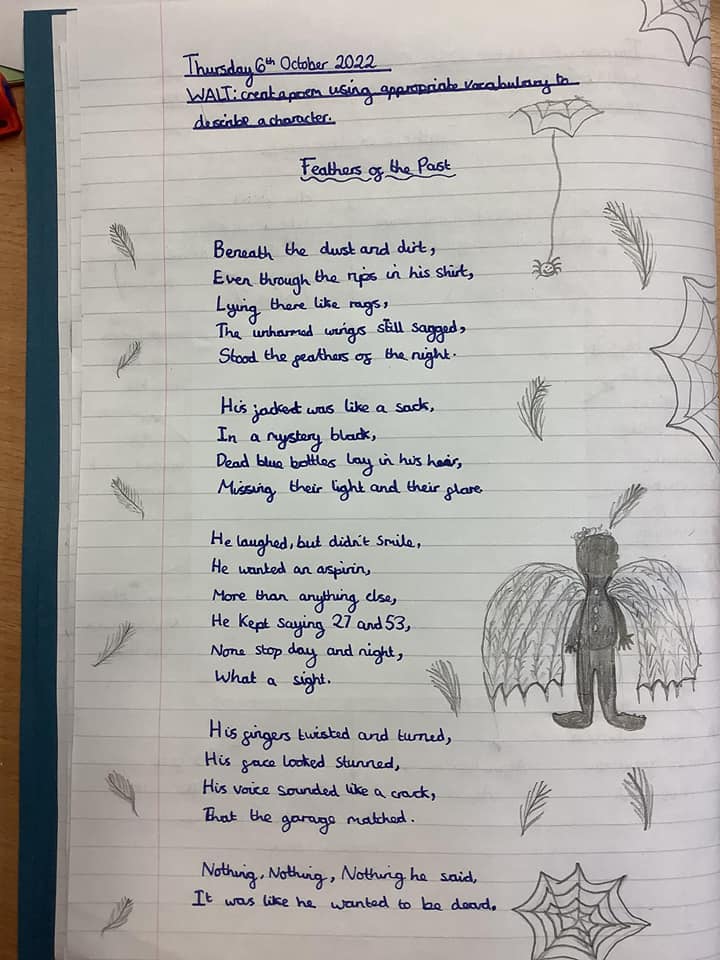 Thursday 6th October 2022
WALT: creat a poem using appropriate vocabulary to
describe a character.
Feathers of the Past
Beneath the dust and dirt,
Even through the rips in his shirt,
Lying there like rags,
The unharmed wings still sagged,
Stood the feathers of the night.
His jacket was like a sack,
In a mystery black,
Dead blue bottles lay in his hair,
Missing their light and their glare.
He laughed, but didn't smile,
He wanted an aspirin,
More than anything else,
He Kept saying 27 and 53,
None stop day and night,
What a sight.
His fingers twisted and turned,
His face looked stunned,
His voice sounded like a crack,
That the garage matched.
Nothing, Nothing, Nothing he said,
It was like he wanted to be dead.